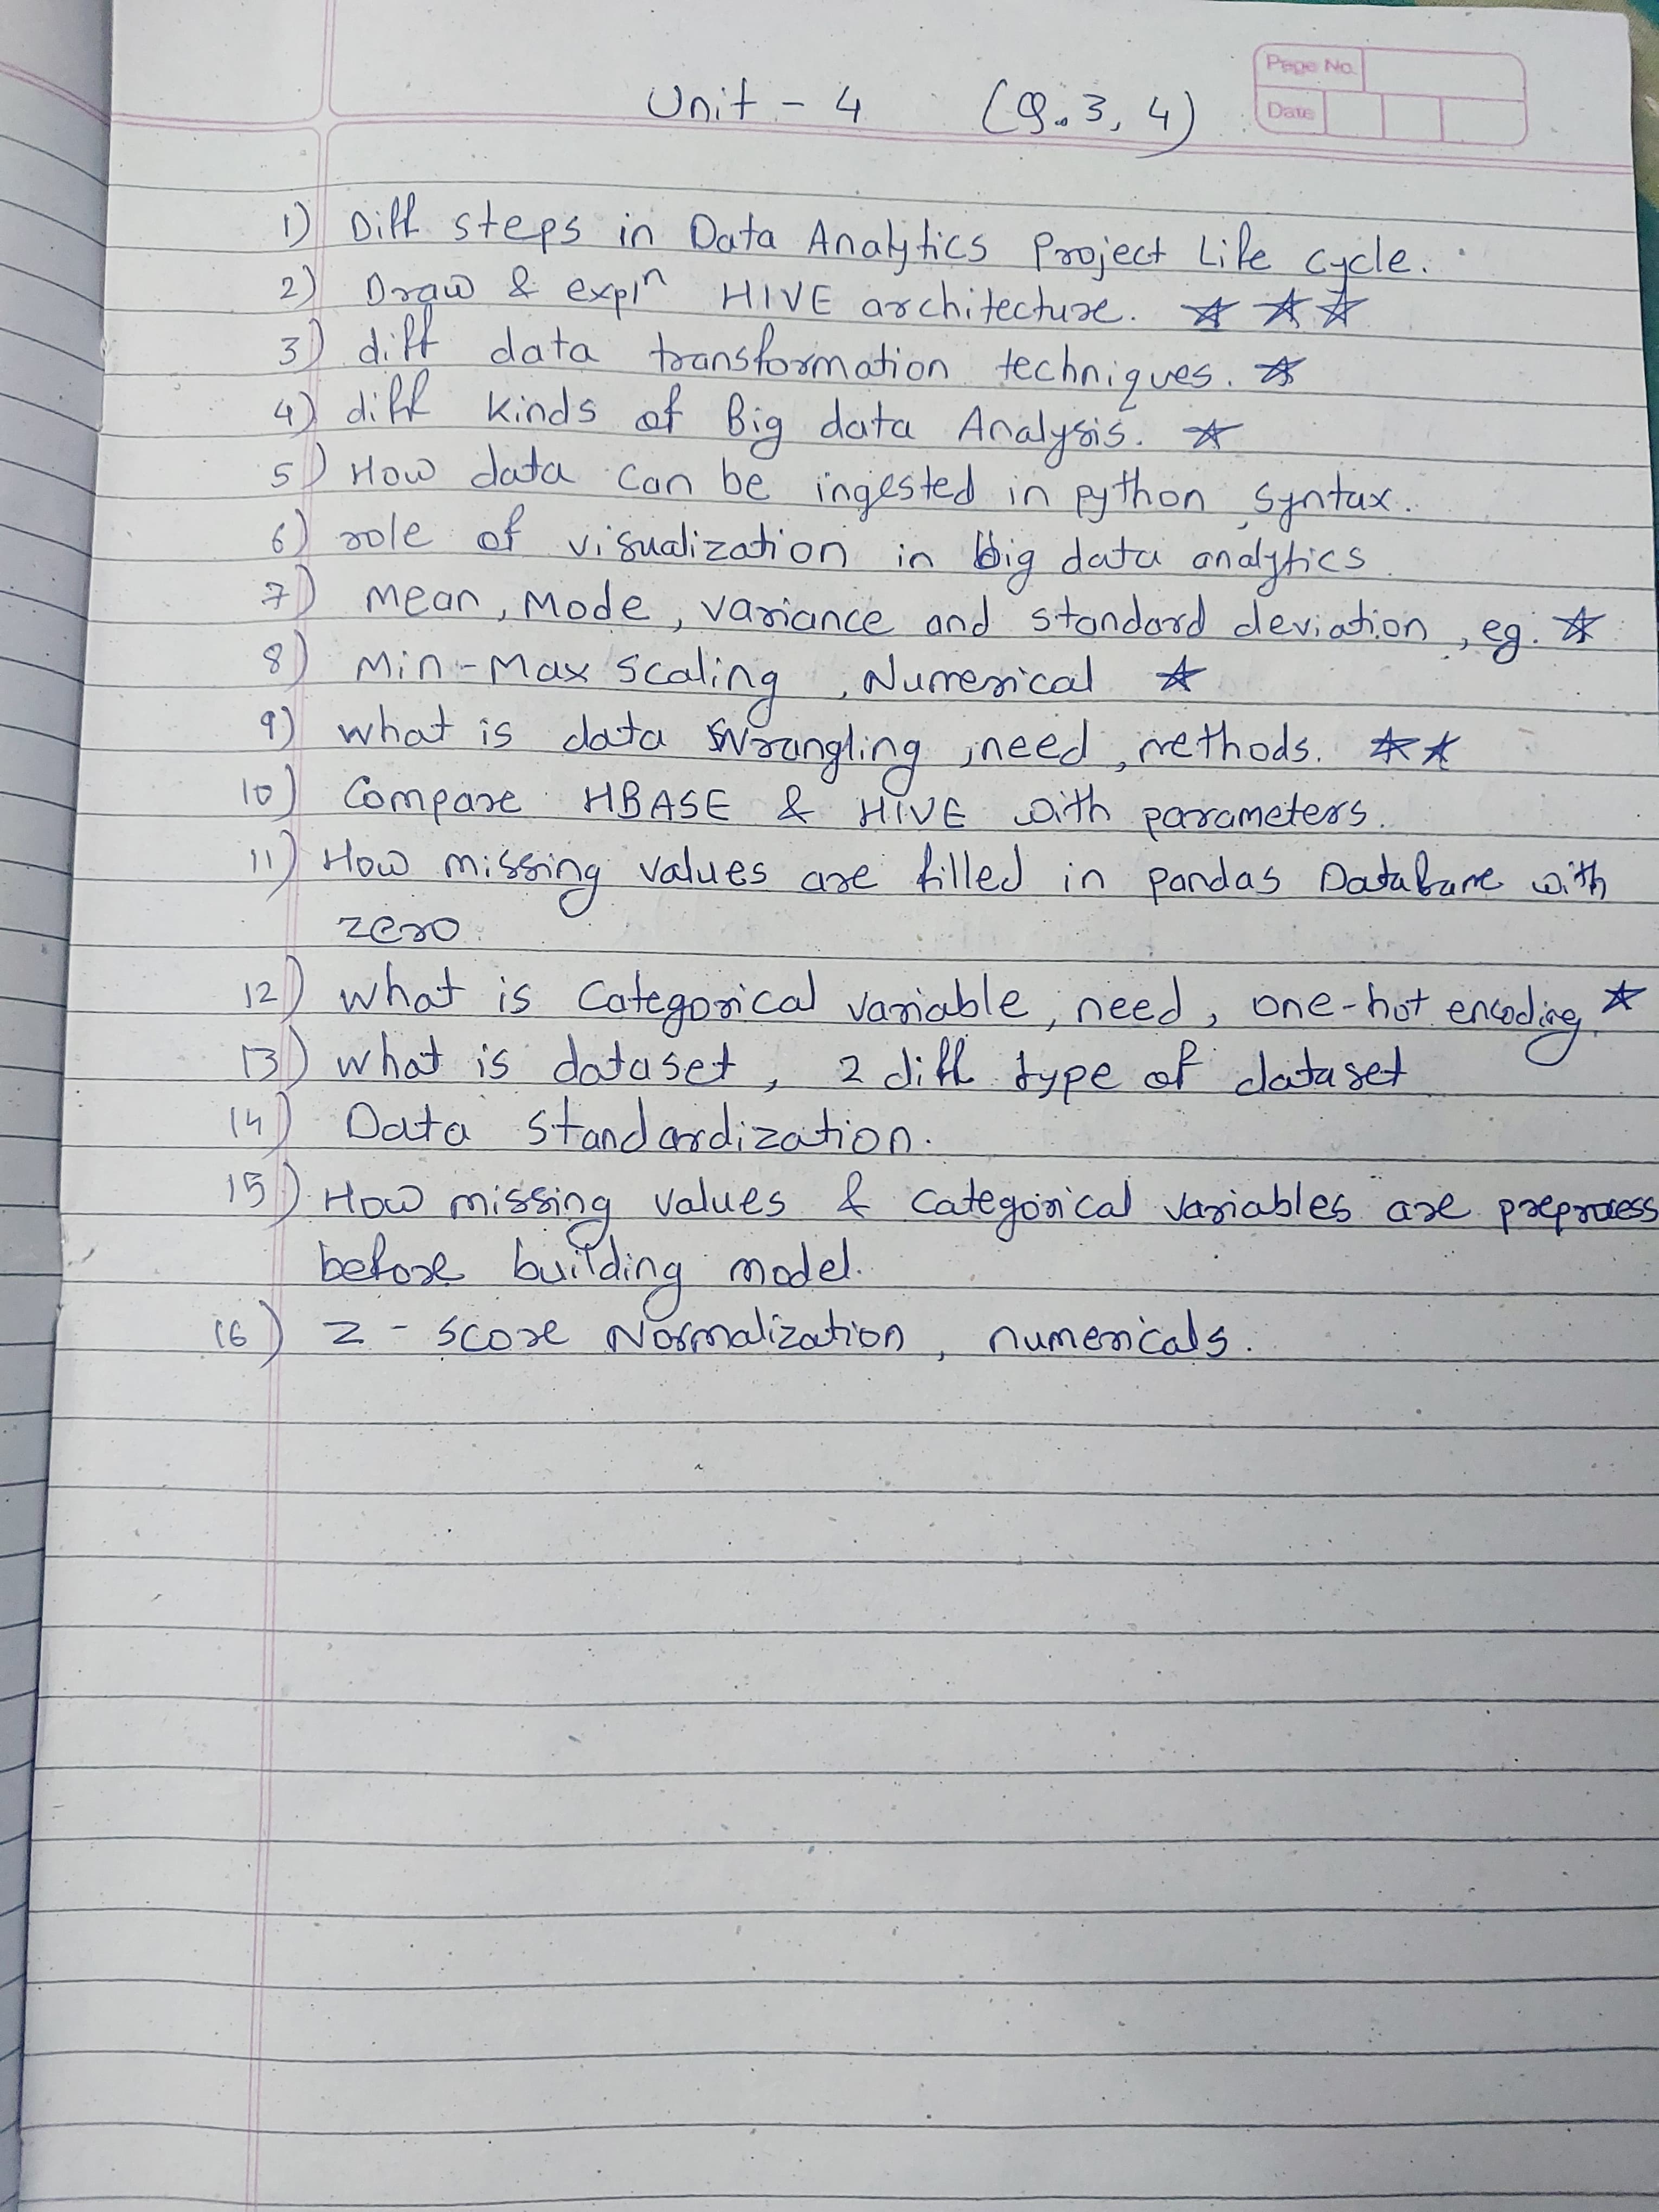 Page No.
Date
Unit - 4 (Q.3, 4)
1) Diff steps in Data Analytics Project Life cycle.
2) Draw & expln HIVE architecture. ☆ ☆ ☆
3) diff data transformation techniques. ☆
4) diff kinds of Big data Analysis. ☆
5) How data can be ingested in python syntax.
6) role of visualization in big data analytics
7) Mean, Mode, variance and standard deviation, eg. ☆
8) Min-Max scaling, Numerical ☆
9) what is data Wrangling, need, methods. ☆ ☆
10) Compare HBASE & HIVE with parameters.
11) How missing values are filled in pandas Databame with
zero.
12) what is Categorical variable, need, one-hot encoding. ☆
13) what is dataset, 2 diff type of dataset
14) Data standardization.
15) How missing values & categorical variables are preprocess
before building model.
16) Z - score Normalization, numericals.